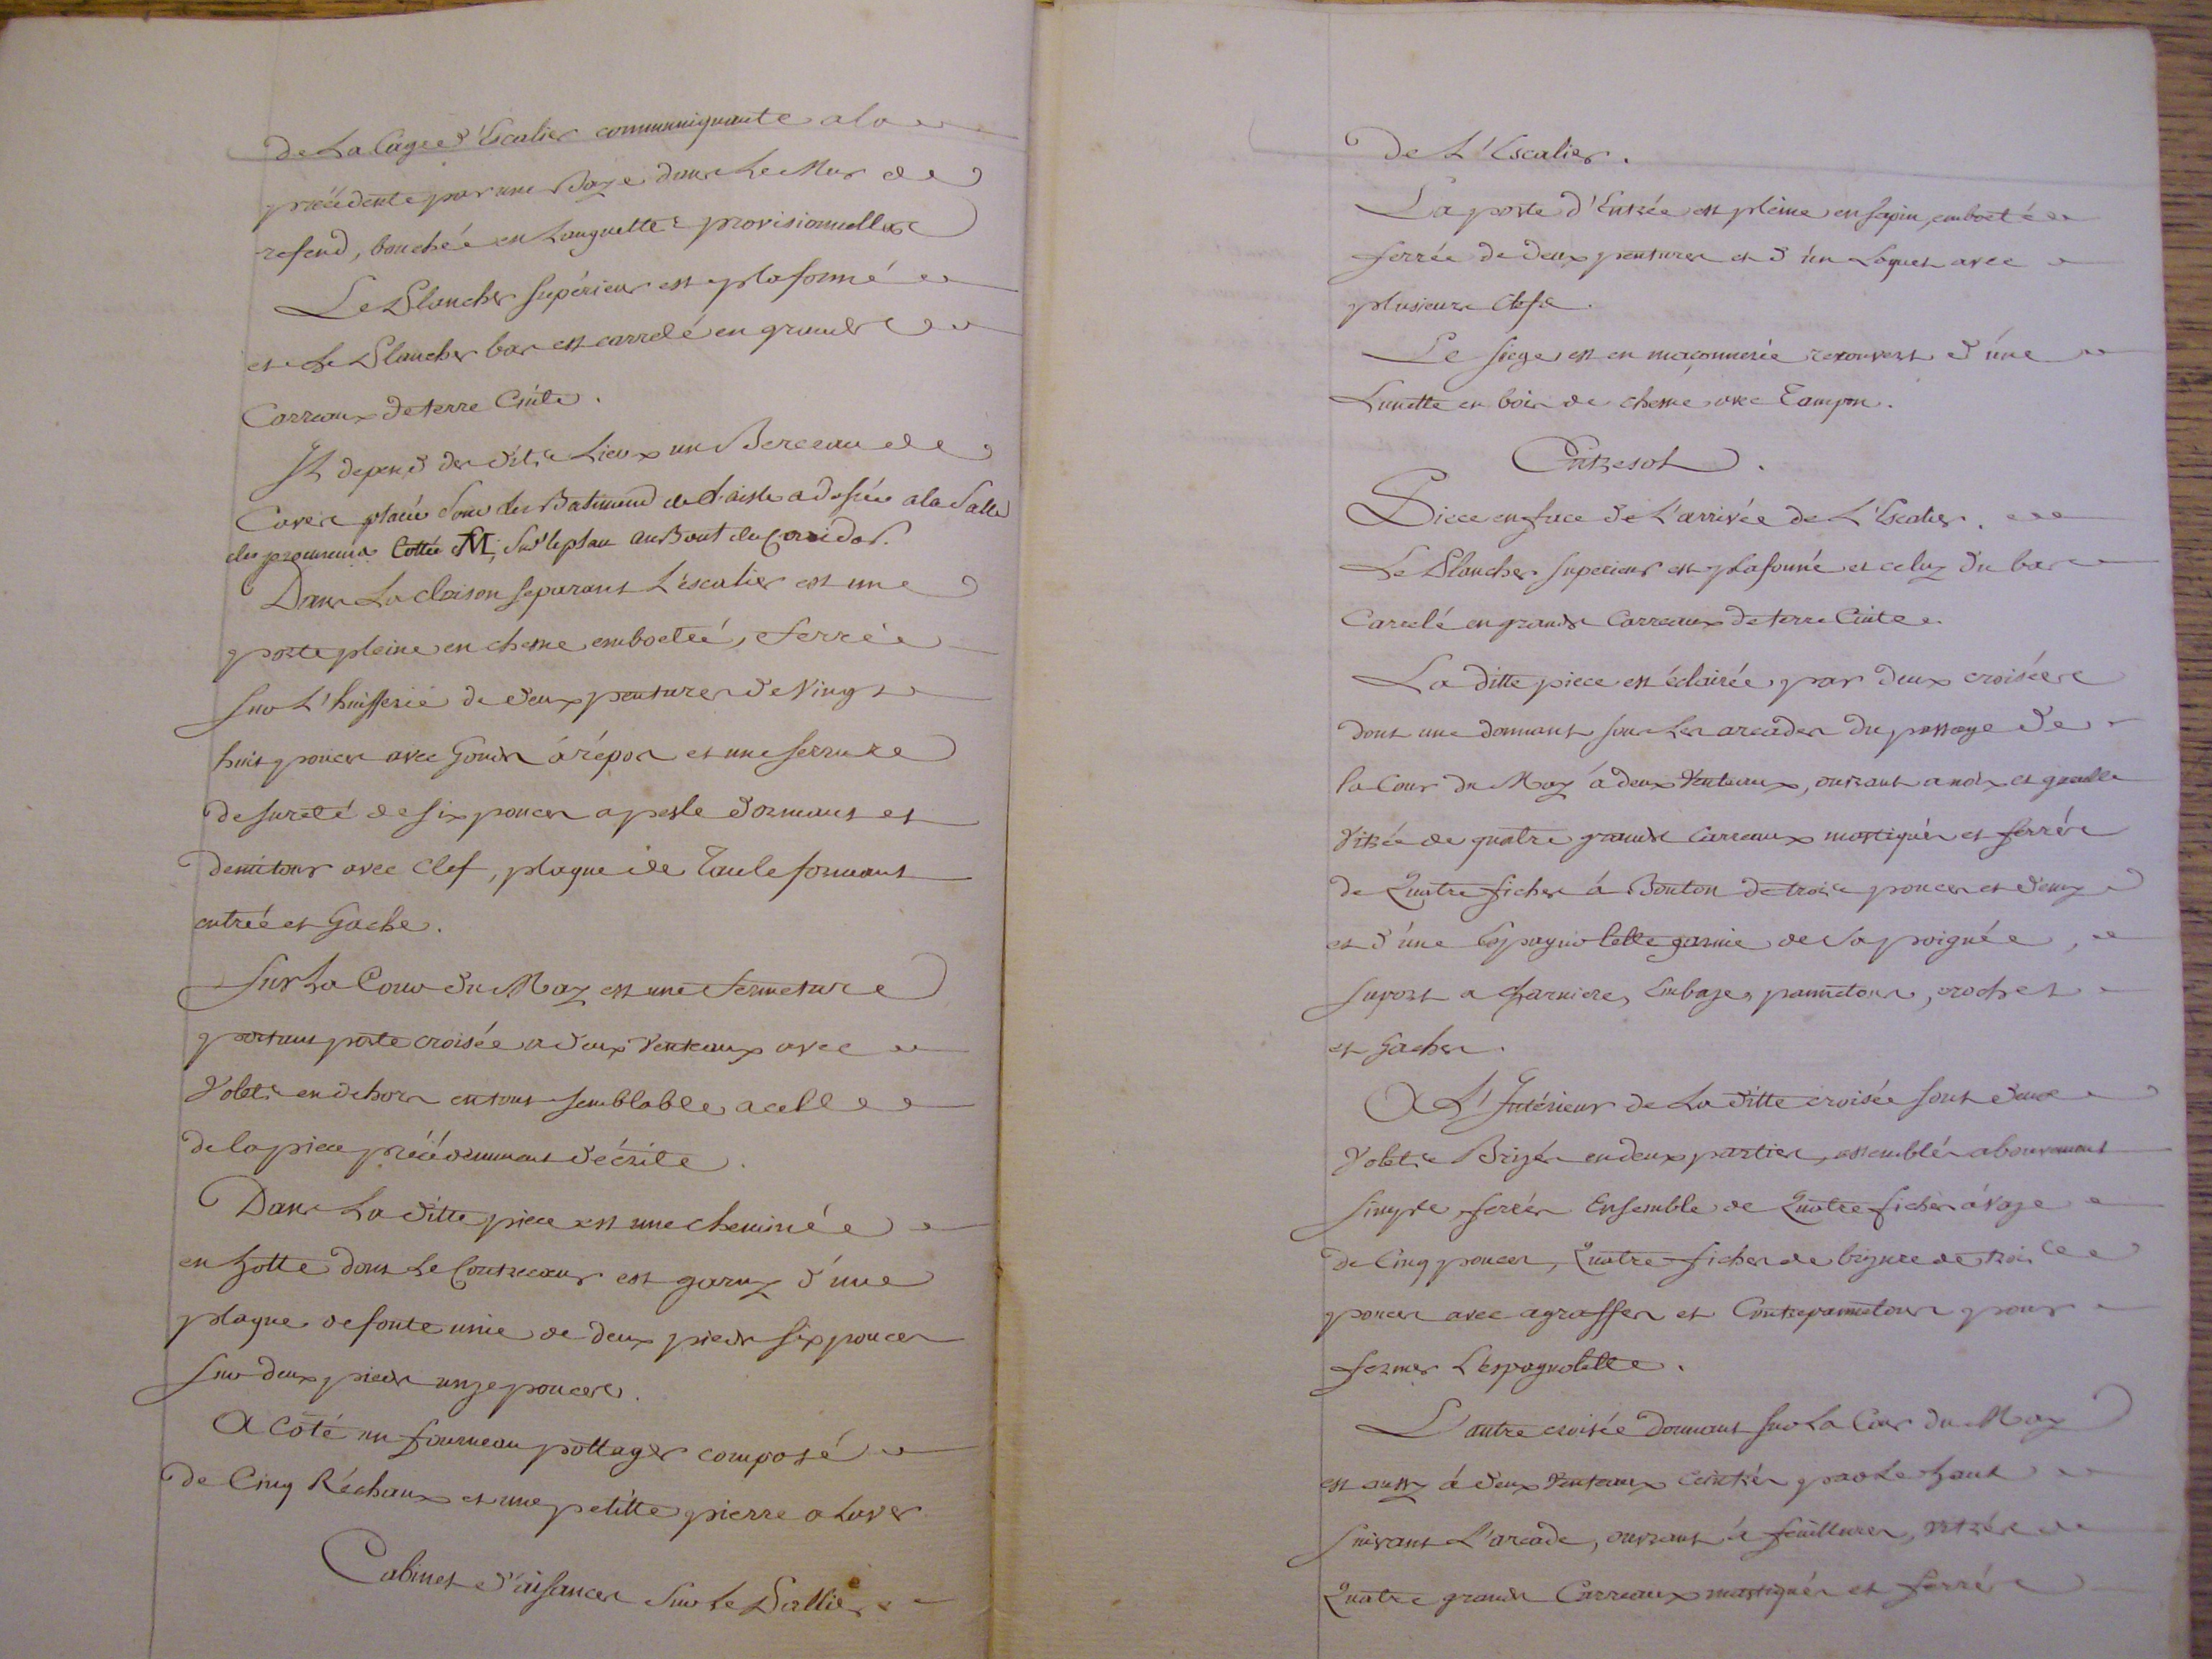 de La Cage d'Escalier communiquante a la
précédente par une Baye dans Le Mur de
refend, bouchée en Languettes provisionnelles
Le Plancher supérieur est plafonné
et Le Plancher bas est carrelé en grands
Carreaux de terre Cuite.
Il depend desdits Lieux un Berceau de
Cave placée sous les Batiment de L'aisle adossée a la Salle
des procureurs Cottée M, Sur le plan au Bout du Corridor.
Dans La cloison separant L'escalier est une
porte pleine en chesne emboetée, ferrée
sur L'huisserie de deux pentures de Vingt
huit pouces avec Gonds à répos et une serrure
de sureté de six pouces a pesle dormant et
demitour avec Clef, plaque de Taule formant
entrée et Gache.
Sur La Cour du May est une fermeture
portant porte croisée a deux Venteaux avec
Volets en dehors en tout semblable a celle
de la piece précédemment décrite.
Dans La ditte piece est une cheminée
en hotte dont Le Contrecœur est garny d'une
plaque de fonte unie de deux pieds six pouces
sur deux pieds unze pouces.
A Coté un fourneau pottager composé
de Cinq Réchaux et une petitte pierre a Laver
Cabinet d'aisances Sur Le Pallier
de L'Escalier.
La porte d'Entrée est pleine en sapin, emboeté
ferrée de deux pentures et d'un Loquet avec
plusieurs Clefs.
Le siege est en maçonnerie recouvert d'une
Lunette en bois de chesne avec Tampon.
Entresol.
Piece en face de L'arrivée de L'Escalier.
Le Plancher superieur est plafonné et celuy du bas
Carrelé en grands Carreaux de terre Cuite.
La ditte piece est éclairée par deux croisées
dont une donnant sous Les arcades du passage de
la Cour du May à deux Venteaux, ouvrant a noix et gueulle
Vitrée de quatre grands Carreaux mastiqués et ferrés
de Quatre fiches á Bouton de trois pouces et demy
et d'une Espagnolette garnie de Sa poignée,
suport a charniere, Embase, pannetons, crochet
et Gaches.
A L'Intérieur de La ditte croisée sont deux
Volets Brisés en deux parties, assemblés abouvement
simple, ferrés Ensemble de Quatre fiches á Vase
de Cinq pouces, Quatre fiches de brisure de trois
pouces avec agraffes et Contrepannetons pour
fermer L'espagnolette.
L'autre croisée donnant sur La Cour du May
est aussy á deux Venteaux Ceintrés par Le haut
suivant L'arcade, ouvrant á feuillures, vitrés de
Quatre grands Carreaux mastiqués et ferrés